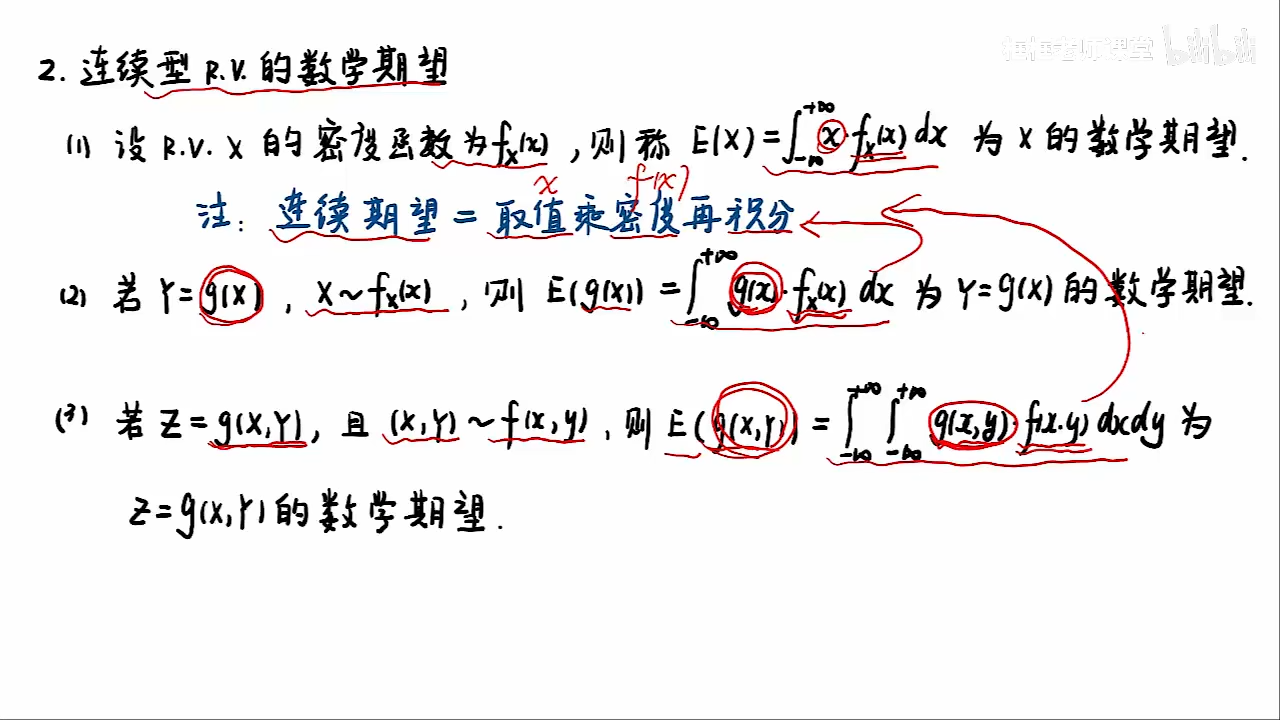 框框老师课堂 bilibili
2. 连续型 R.V. 的数学期望
(1) 设 R.V. X 的密度函数为 f_X(x), 则称 E(X) = ∫_{-∞}^{+∞} x·f_X(x) dx 为 X 的数学期望.
x f(x)
注: 连续期望 = 取值乘密度再积分
(2) 若 Y = g(X), X ~ f_X(x), 则 E(g(X)) = ∫_{-∞}^{+∞} g(x)·f_X(x) dx 为 Y = g(X) 的数学期望.
(3) 若 Z = g(X,Y), 且 (X,Y) ~ f(x,y), 则 E(g(X,Y)) = ∫_{-∞}^{+∞} ∫_{-∞}^{+∞} g(x,y)·f(x.y) dxdy 为
Z = g(X,Y) 的数学期望.